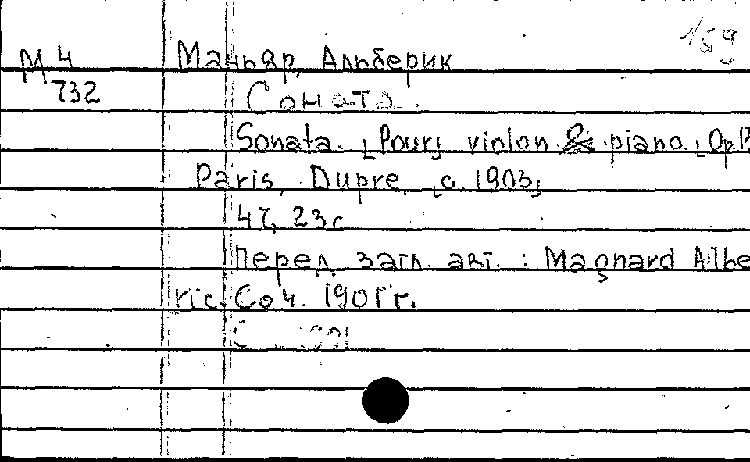 1/59
М 4
732
Маньяр, Альберик
Соната.
Sonata. [Pour] violon & piano. Op. 13
Paris, Dupre, [c. 1903]
4 г, 23 с
Перед загл. авт. : Magnard Albe
ric. Соч. 1901 г.